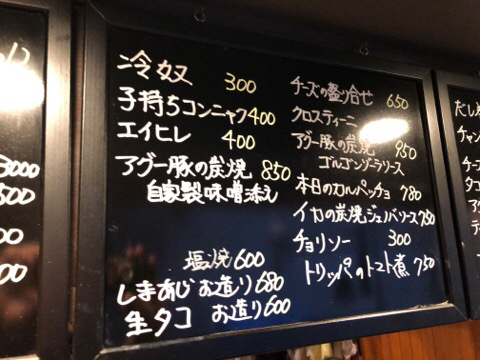 冷奴 300
子持ちコンニャク 400
エイヒレ 400
アグー豚の炭焼 850
自家製味噌添え
塩焼 600
しまあじ お造り 680
生タコ お造り 600
チーズの盛り合せ 650
クロスティーニ
アグー豚の炭焼 950
ゴルゴンゾーラソース
本日のカルパッチョ 780
イカの炭焼ジェノバソース 750
チョリソー 300
トリッパのトマト煮 750
3000
500
00
00
だし
チャン
チーズ
タコ